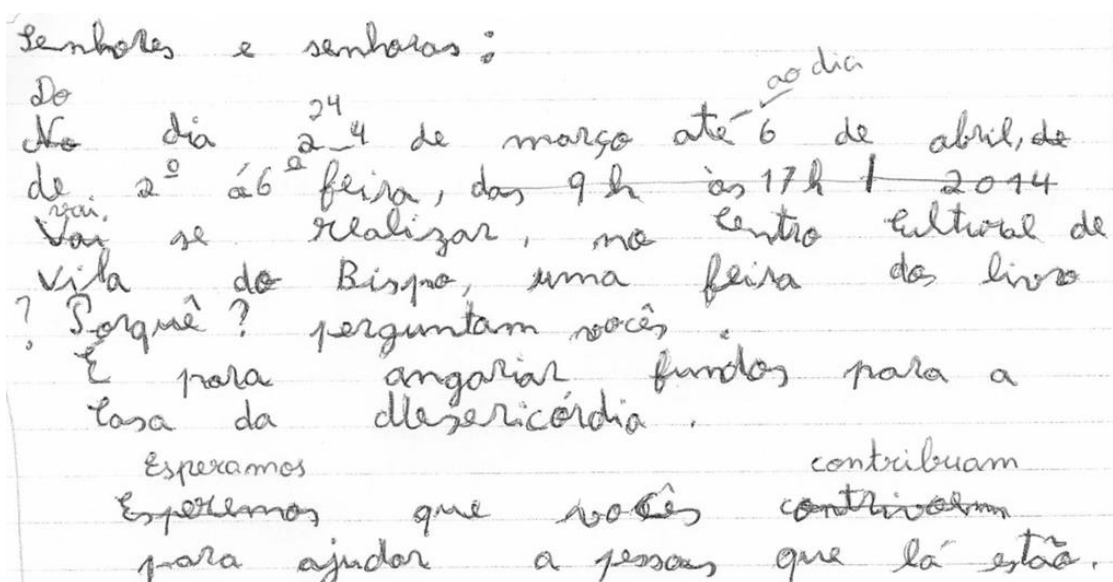 Senhores e senhoras:
ao dia
Do 24
No dia 2_4 de março até 6 de abril, de
de 2º á 6º feira, das 9 h às 17 h / 2014
vai,
Vai se realizar, no Centro Cultural de
Vila do Bispo, uma feira do livro
? Porquê? perguntam vocês.
É para angariar fundos para a
Casa da Mesericórdia.
Esperamos contribuam
Esperemos que vocês
para ajudar a pessoas que lá estão.